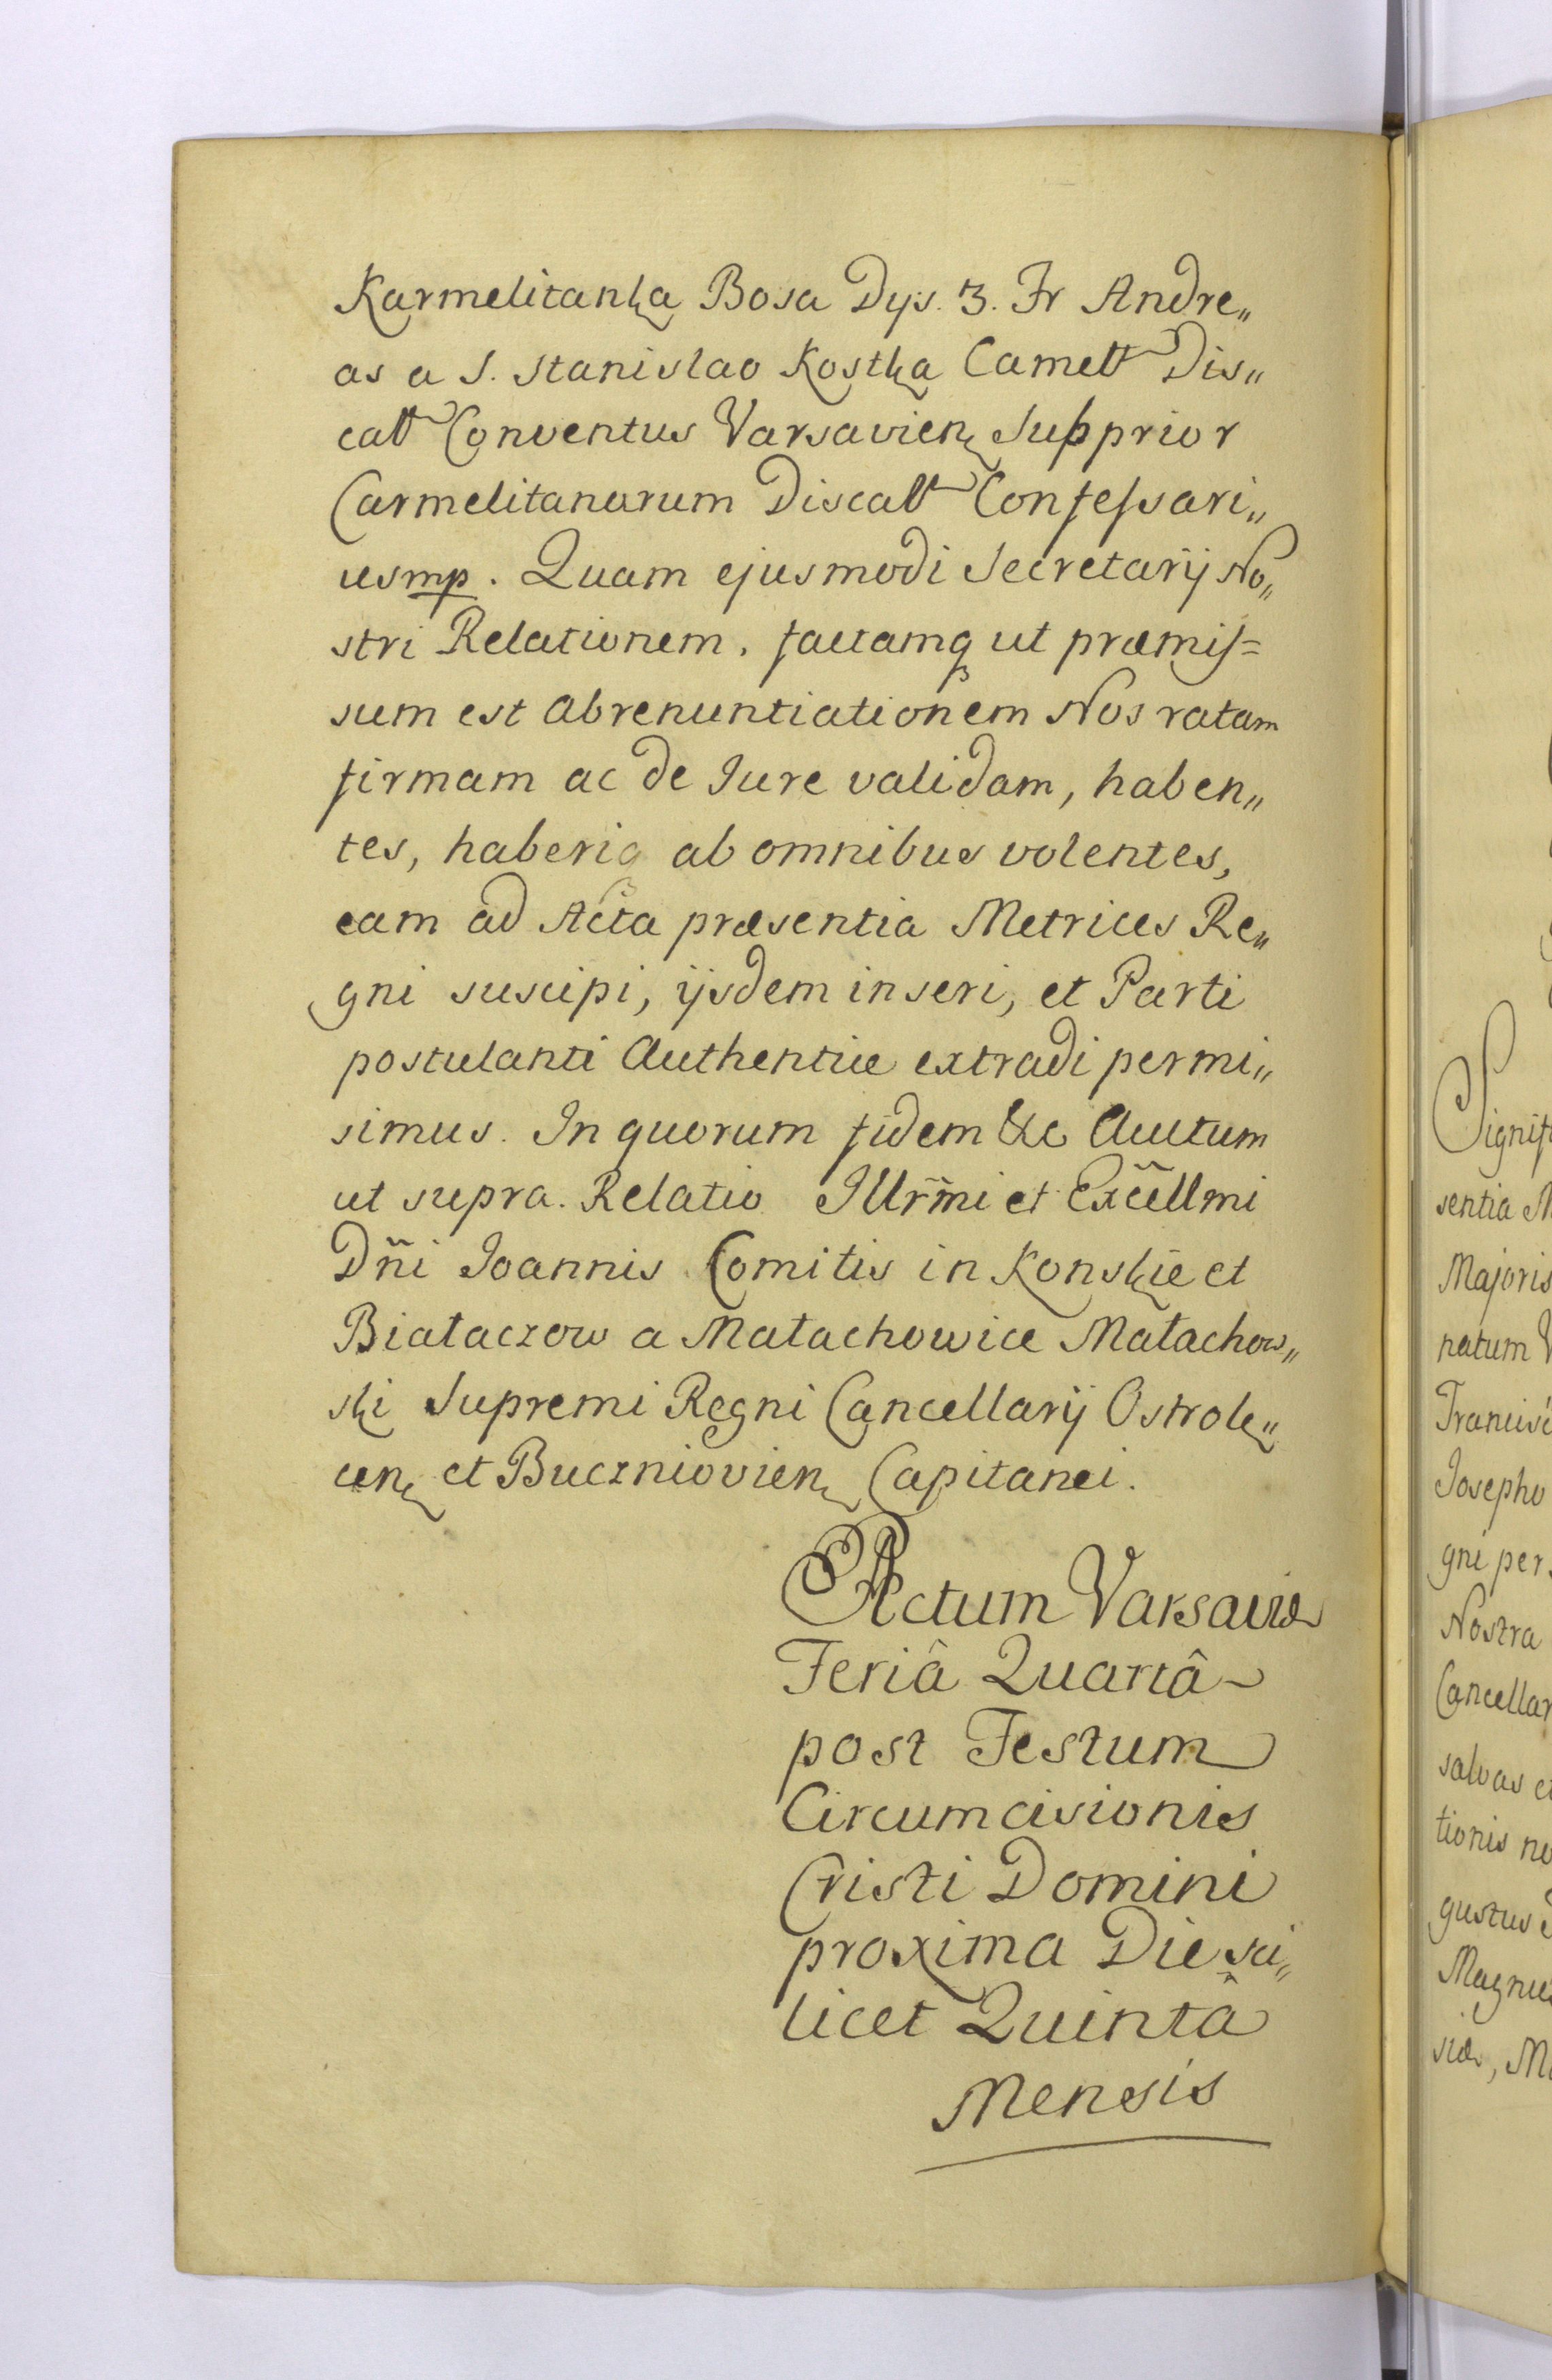 Karmelitanka Bosa Dys. 3. Fr Andre„
as a S. Stanislao Kostka Camelt Dis„
calt Conventus Varsavien Supprior
Carmelitanarum Discalt Confeſsari„
usmp. Quam ejusmodi Secretarij No„
stri Relationem, factamq ut præmiſ=
sum est Abrenuntiationem Nos ratam
firmam ac de Jure validam, haben„
tes, haberiq ab omnibus volentes,
eam ad Acta præsentia Metrices Re„
gni suscipi, ijsdem inseri, et Parti
postulanti Authentice extradi permi„
simus. In quorum fidem &c Actum
ut supra. Relatio Illrm̃i et Excellmi
Dñi Joannis Comitis in Konskie et
Białaczow a Małachowice Małachow„
ski Supremi Regni Cancellarij Ostrole„
cen et Buczniovien Capitanei.
Actum Varsaviæ
Feriâ Quartâ
post Festum
Circumcisionis
Cristi Domini
proxima Die sci„
licet Quintâ
Mensis
Signif
sentia M
Majoris
natum V
Francisc
Josepho
gni per
Nostra
Cancellar
salvas et
tionis no
gustus
Magnus
siæ, Ma